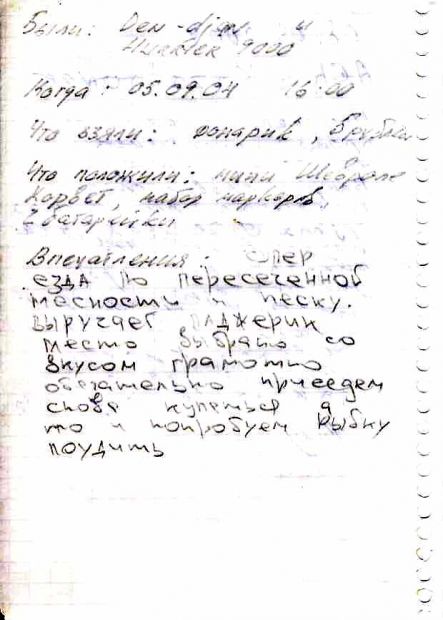 Были: Den-djar и
Hunter 9000
Когда: 05.09.04 16:00
Что взяли: фонарик,
Что положили: мини Шевроле
Корвет, набор маркеров,
2 батарейки
Впечатления: супер
езда по пересеченной
месности и песку.
выручает паджерик
место выбрано со
вкусом грамотно
обезательно приеедем
снова купеться а
то и попробуем рыбку
поудить